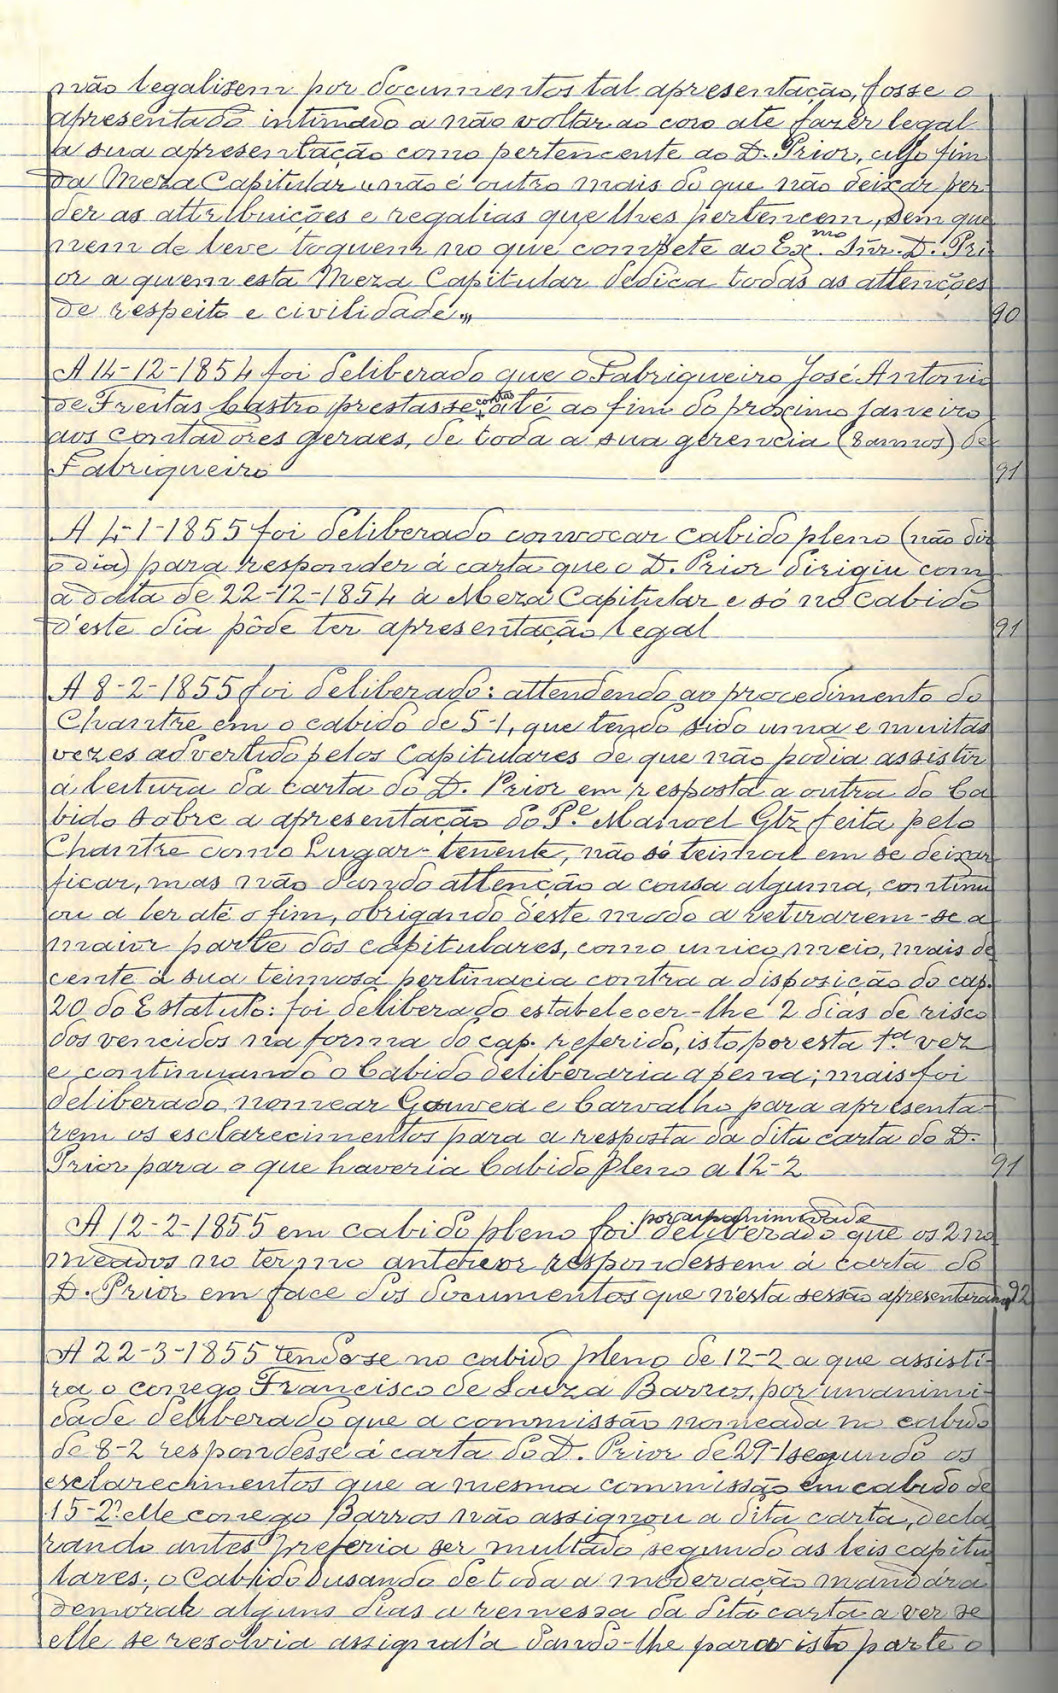 não legalisem por documentos tal apresentação, fosse o
apresentado intimado a não voltar ao coro até fazer legal
a sua apresentação como pertencente ao D. Prior, cujo fim
da Meza Capitular não é outro mais do que não deixar per-
der as attribuições e regalias que lhes pertencem, sem que
nem de leve toquem no que compete ao Ex.mo Snr. D. Pri
or a quem esta Meza Capitular dedica todas as attenções
de respeito e civilidade,,
90
A 14-12-1854 foi deliberado que o Fabriqueiro José Antonio
de Freitas Castro prestasse contas até ao fim do proximo Janeiro
aos contadores geraes, de toda a sua gerencia (8 annos) de
Fabriqueiro
91
A 4-1-1855 foi deliberado convocar cabido pleno (não diz
o dia) para responder á carta que o D. Prior dirigiu com
a data de 22-12-1854 à Meza Capitular e só no cabido
d'este dia pôde ter apresentação legal
91
A 8-2-1855 foi deliberado: attendendo ao procedimento do
Chantre em o cabido de 5-1, que tendo sido uma e muitas
vezes advertido pelos capitulares de que não podia assistir
á leitura da carta do D. Prior em resposta a outra do Ca
bido sobre a apresentação do P.e Manoel Glz feita pelo
Chantre como Lugar-tenente, não só teimou em se deixar
ficar, mas não dando attenção a cousa alguma, continu
ou a ler até o fim, obrigando d'este modo a retirarem-se a
maior parte dos capitulares, como unico meio, mais de
cente á sua teimosa pertinacia contra a disposição do cap.
20 do Estatuto: foi deliberado estabelecer-lhe 2 dias de risco
dos vencidos na forma do cap. referido, isto por esta 1.a vez
e continuando o Cabido deliberaria a pena; mais foi
deliberado nomear Gouvea e Carvalho para apresenta-
rem os esclarecimentos para a resposta da dita carta do D.
Prior para o que haveria Cabido pleno a 12-2
91
A 12-2-1855 em cabido pleno foi por unanimidade deliberado que os 2 no
meados no termo anterior respondessem á carta do
D. Prior em face dos documentos que n'esta sessão apresentaram
92
A 22-3-1855 tendo-se no cabido pleno de 12-2 a que assisti-
ra o conego Francisco de Souza Barros, por unanimi-
dade deliberado que a commissão nomeada no cabido
de 8-2 respondesse á carta do D. Prior de 29-1 segundo os
esclarecimentos que a mesma commissão em cabido de
15-2? elle conego Barros não assignou a dita carta, decla
rando antes preferia ser multado segundo as leis capitu
lares; o Cabido usando de toda a moderação mandára
demorar alguns dias a remessa da dita carta a ver se
elle se resolvia assignal'a dando-lhe para isto parte o